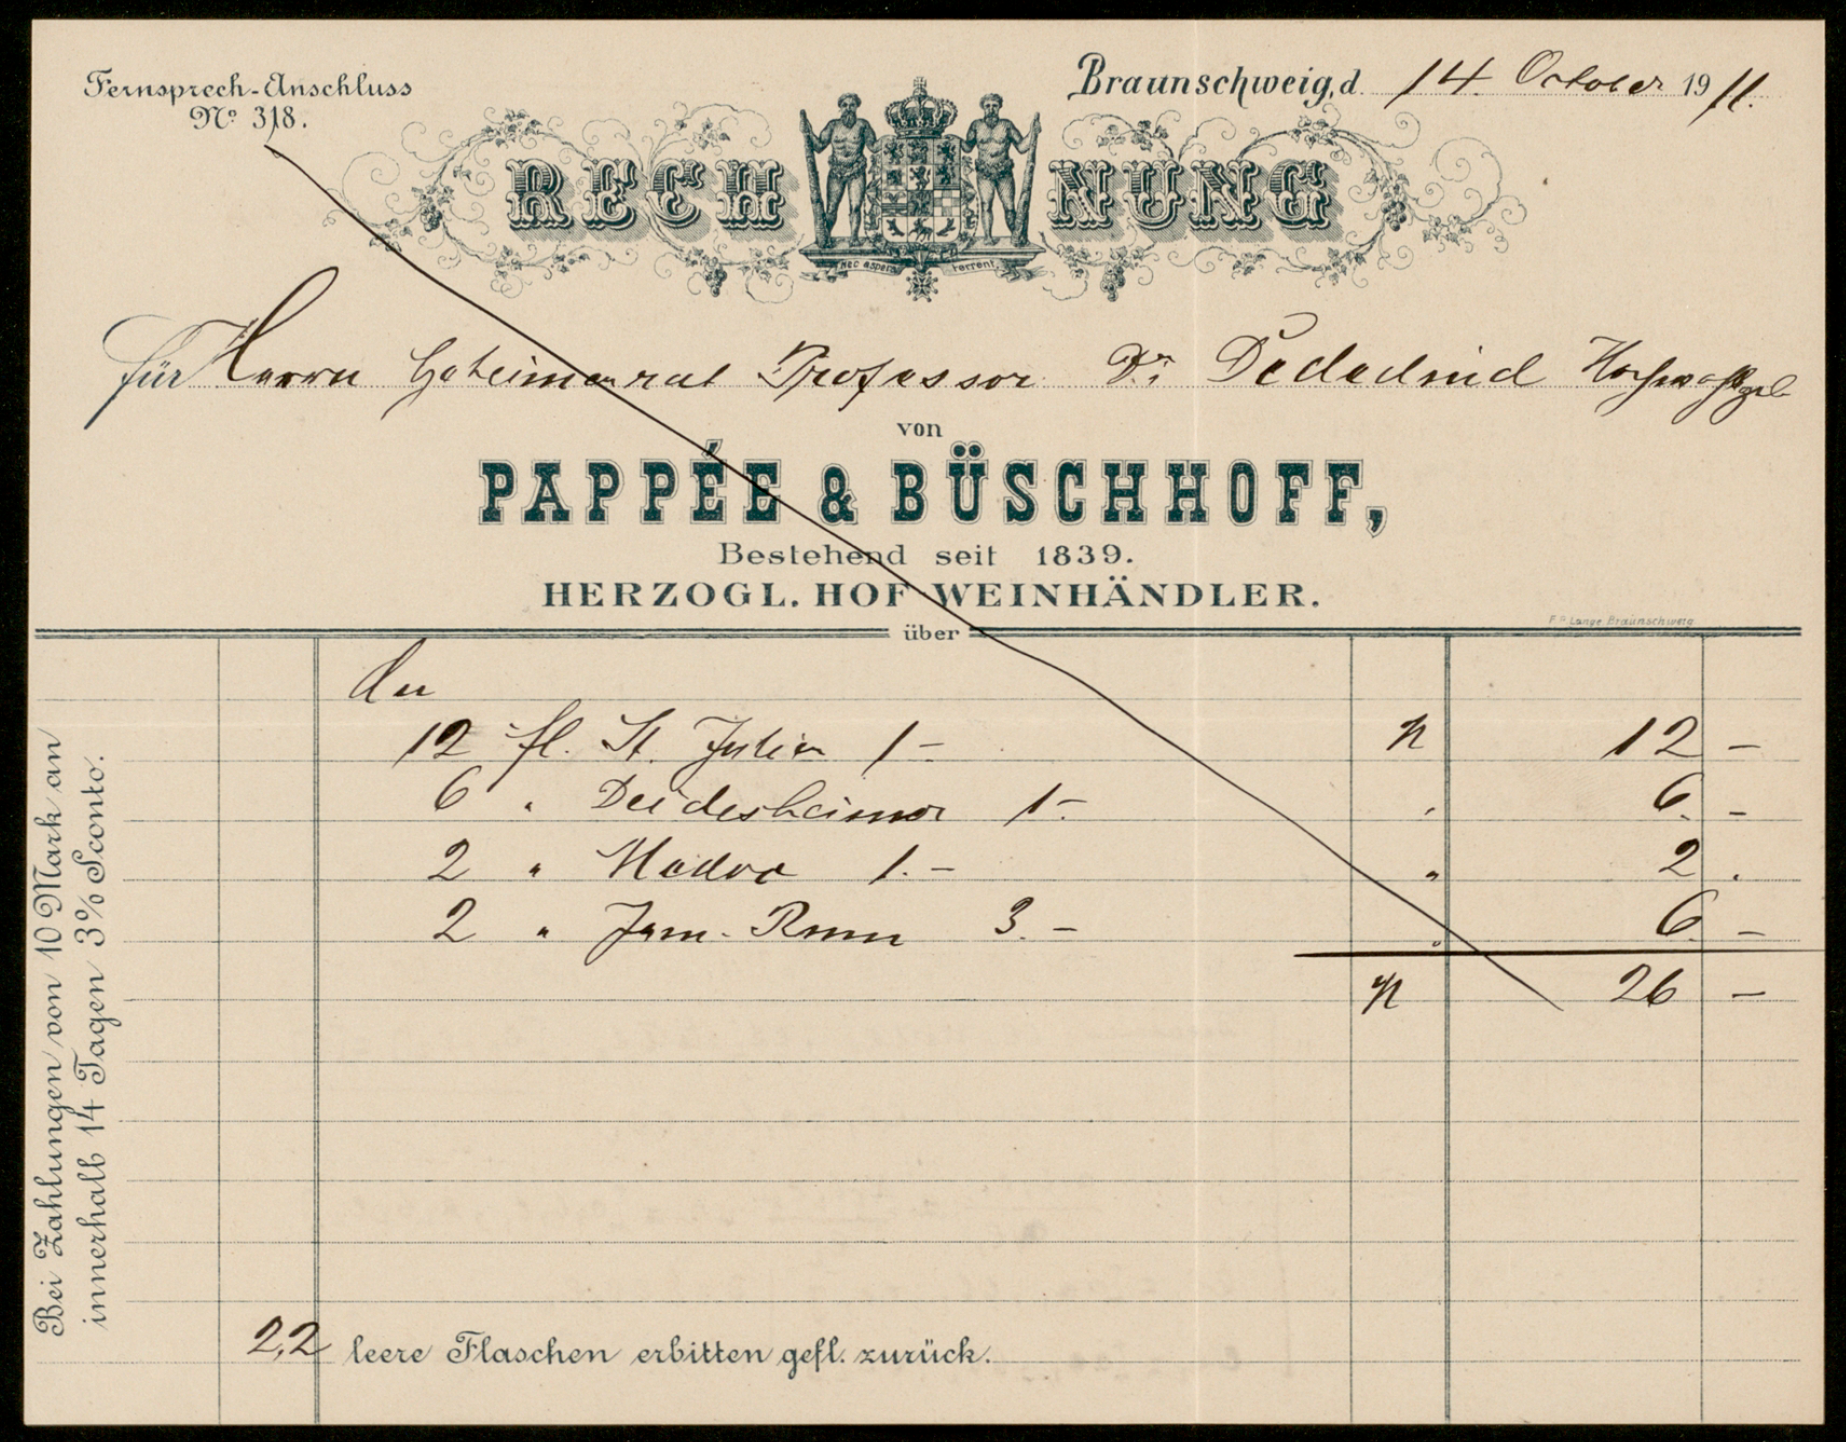 Fernsprech-Anschluss
No. 318.
Braunschweig, d. 14. October 1911.
RECHNUNG
nec aspera terrent.
für Herrn Geheimenrat Professor Dr. Dedekind Hochwohlgeb
von
PAPPÉE & BÜSCHHOFF,
Bestehend seit 1839.
HERZOGL. HOF WEINHÄNDLER.
F. Lange Braunschweig
über
An
12 fl. St. Julien 1 – M 12 –
6 " Deidesheimer 1.– " 6. –
2 " 1.– " 2 .
2 " Jam. Rum 3. – " 6. –
M 26 –
Bei Zahlungen von 10 Mark an
innerhalb 14 Tagen 3% Sconto.
22 leere Flaschen erbitten gefl. zurück.